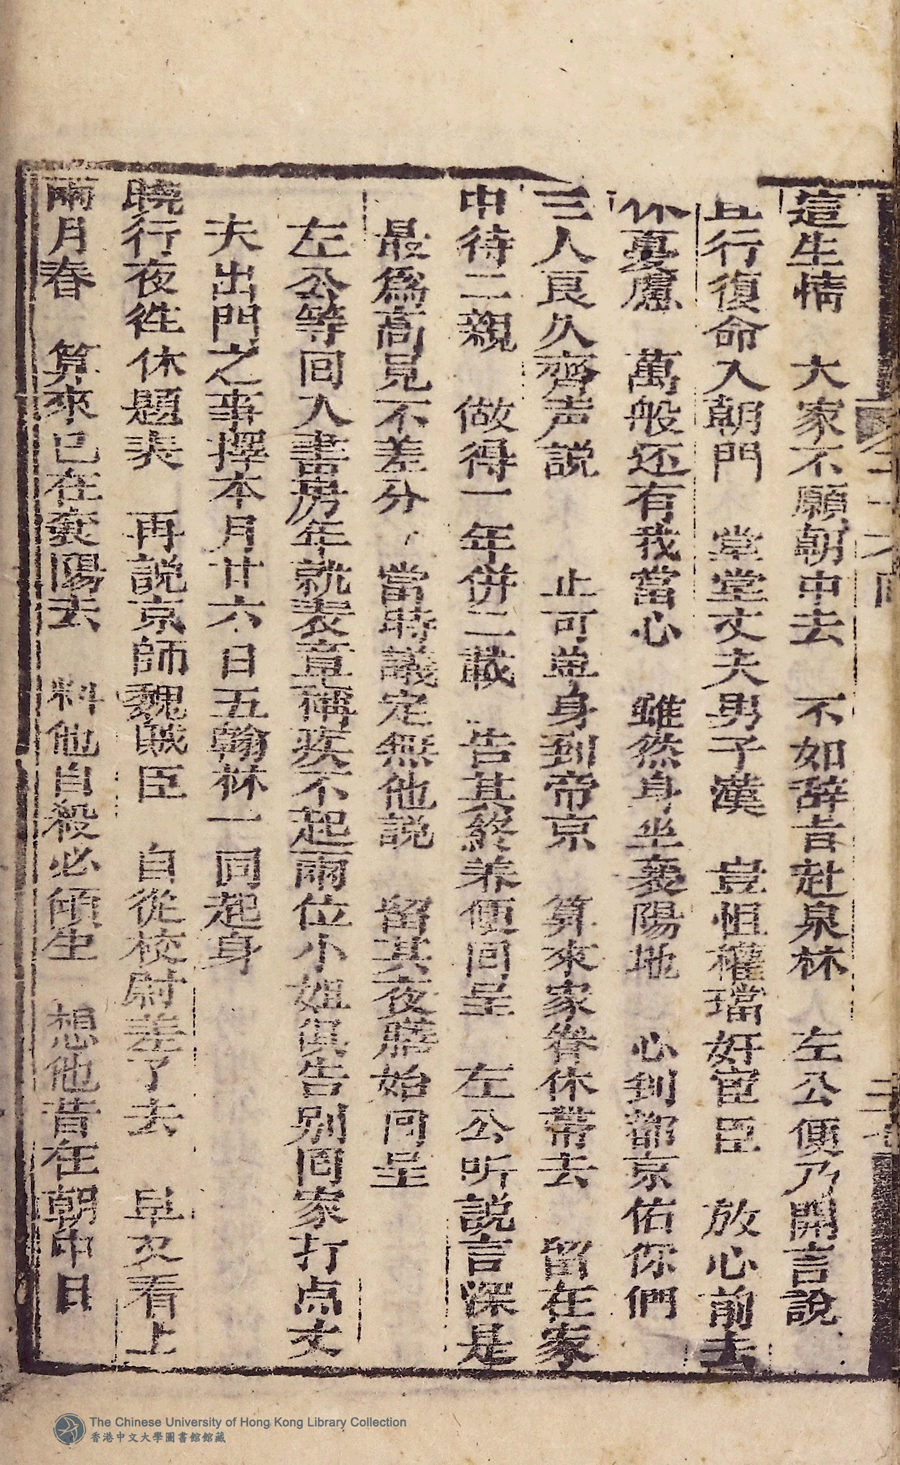 這生情　大家不願朝中去　不如辞吉赴泉林　左公便乃開言說
且行復命入朝門　堂堂丈夫男子漢　豈怛權璫奸宦臣　放心前去
休憂慮　萬般还有我當心　雖然身坐襄陽地　心到都京佑你們
三人良久齊声説　止可単身到帝京　算來家眷休帶去　留在家
中待二親　做得一年併二載　告其終养便回呈　左公听説言深是
最為高見不差分　當時議定無他說　留其夜膳始回呈
左公等回入書房年就表章稱疾不起兩位小姐俱告别囘家打点丈
夫出門之事擇本月廿六日五翰林一同起身
曉行夜徃休題表　再說京師魏賊臣　自從校尉差了去　早又看上
兩月春　算來已在襄陽去　料他自殺必傾生　想他昔在朝中日
二十七
The Chinese University of Hong Kong Library Collection
香港中文大學圖書館館藏